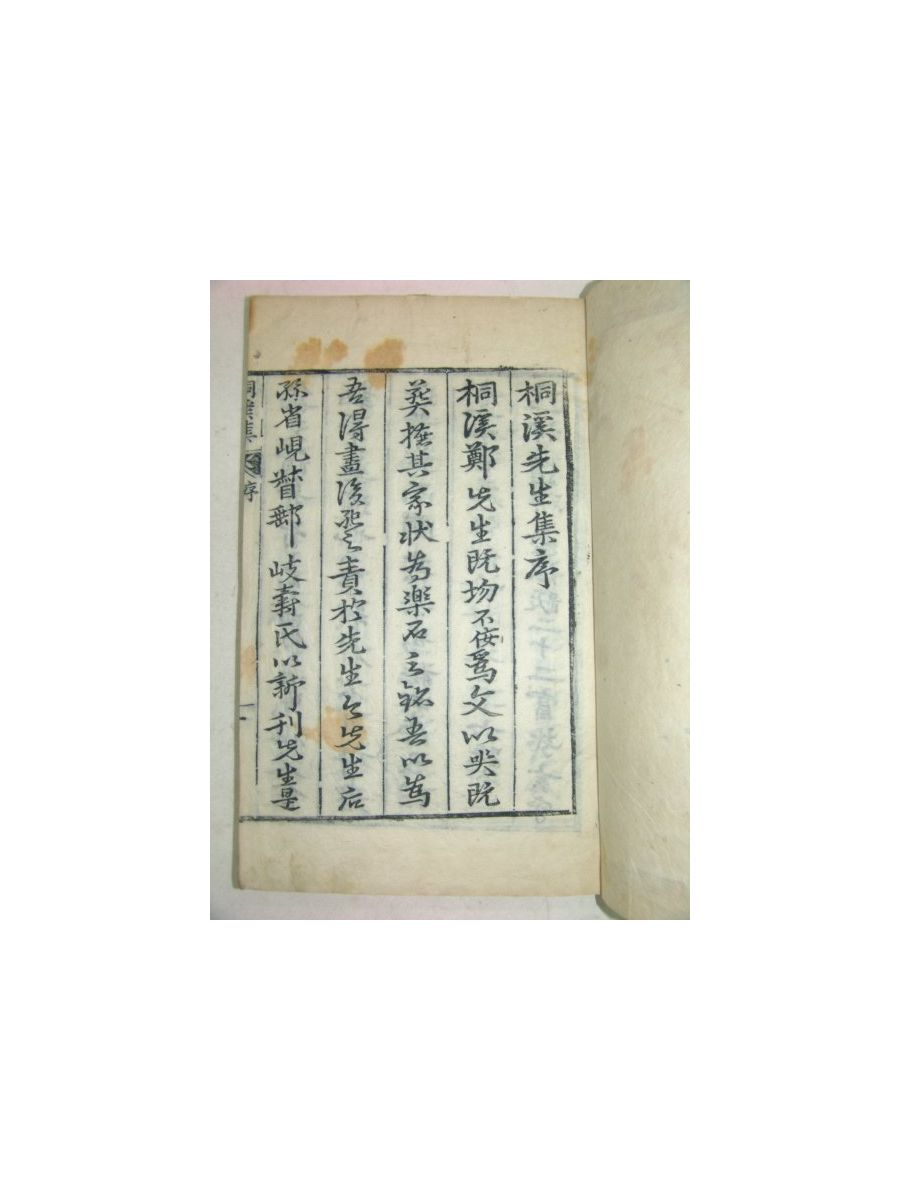 桐溪先生集序
桐溪鄭先生旣歿不佞爲文以哭旣
葬摭其家狀爲樂石之銘吾以爲
吾得盡後死之責於先生今先生后
孫省峴督郵岐壽氏以新刊先生
桐溪集 序 一